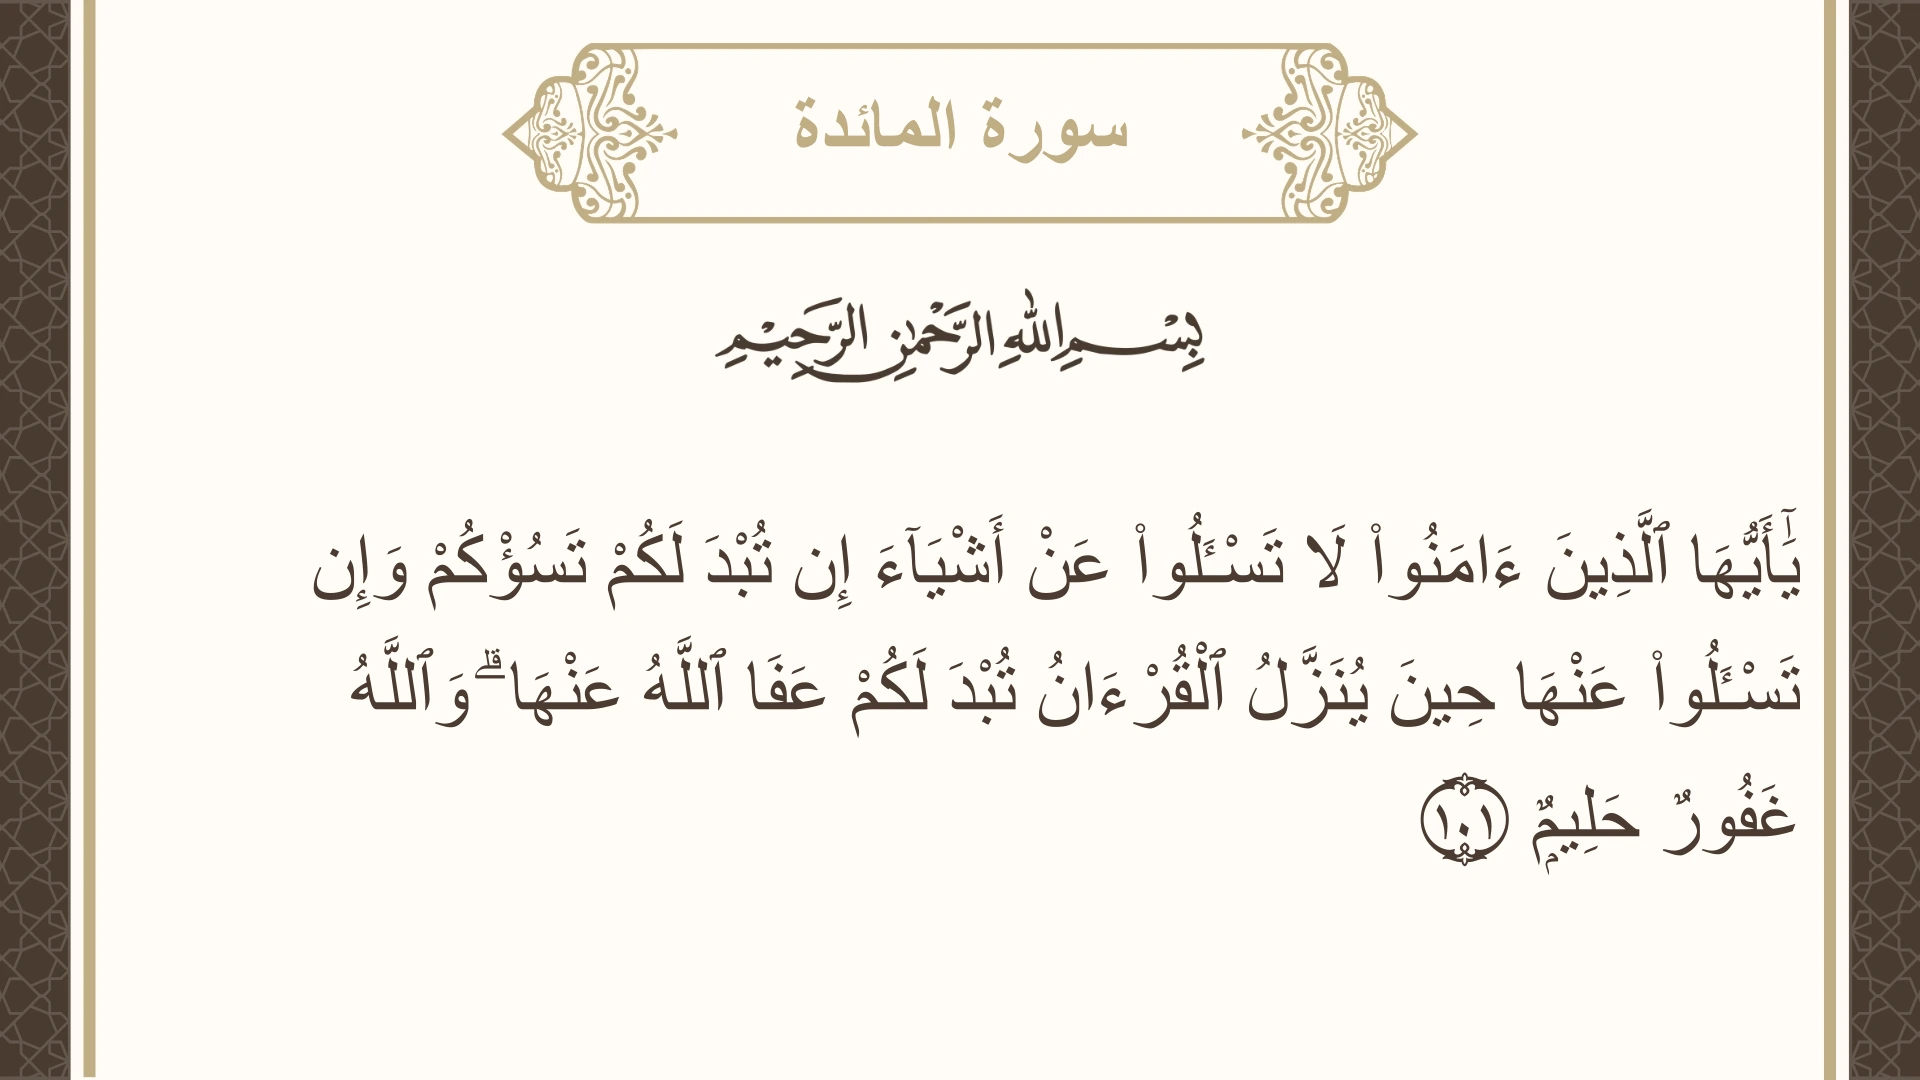 سورة المائدة
بِسْمِ اللهِ الرَّحْمٰنِ الرَّحِيْمِ
يَٰٓأَيُّهَا ٱلَّذِينَ ءَامَنُوا۟ لَا تَسْـَٔلُوا۟ عَنْ أَشْيَآءَ إِن تُبْدَ لَكُمْ تَسُؤْكُمْ وَإِن
تَسْـَٔلُوا۟ عَنْهَا حِينَ يُنَزَّلُ ٱلْقُرْءَانُ تُبْدَ لَكُمْ عَفَا ٱللَّهُ عَنْهَا ۗ وَٱللَّهُ
غَفُورٌ حَلِيمٌۭ ١٠١